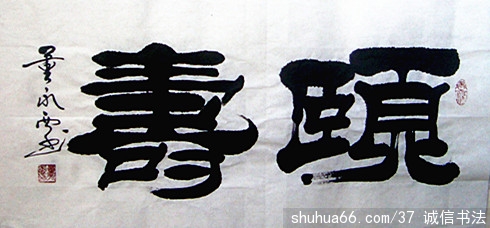 頤壽
董永雲书
shuhua66.com/37 诚信书法